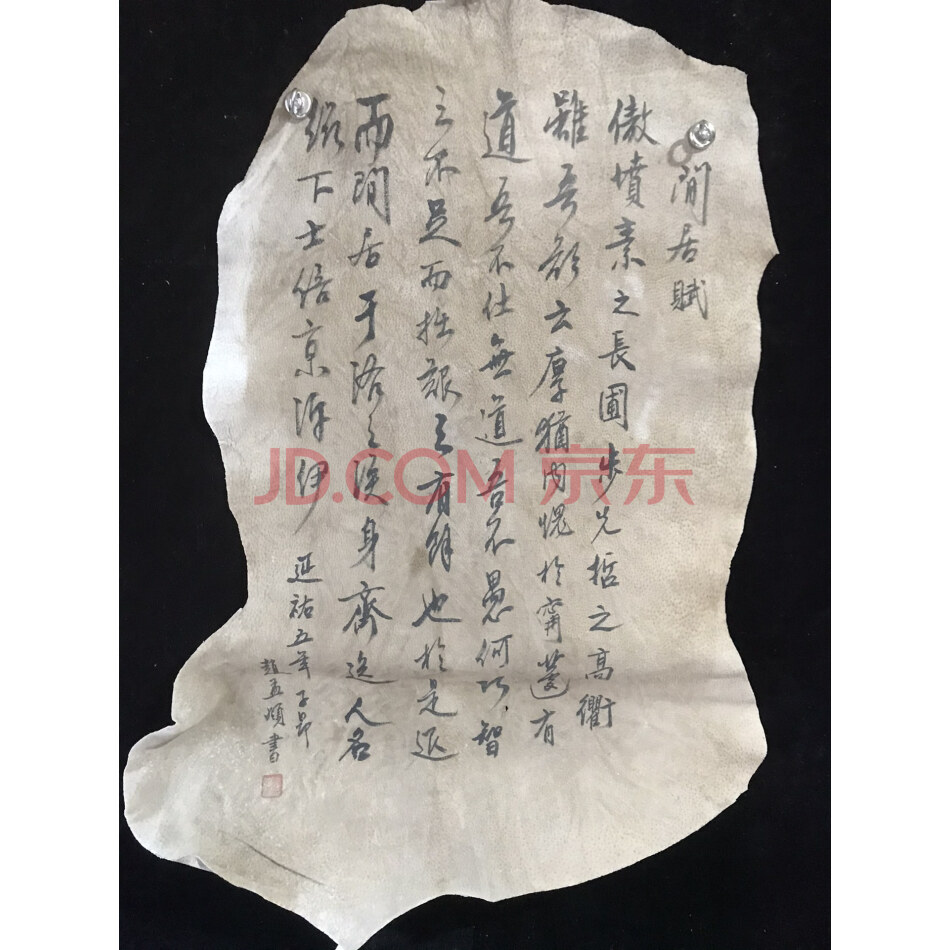 閒居賦
傲墳素之長圃步先哲之高衢
雖吾顏云厚猶內愧於甯蘧有
道吾不仕無道吾不愚何巧智
之不足而拙艱之有餘也於是退
而閒居于洛之涘身齊逸人名
綴下士倍京泝伊
延祐五年子昂
趙孟頫書
JD.COM 京东